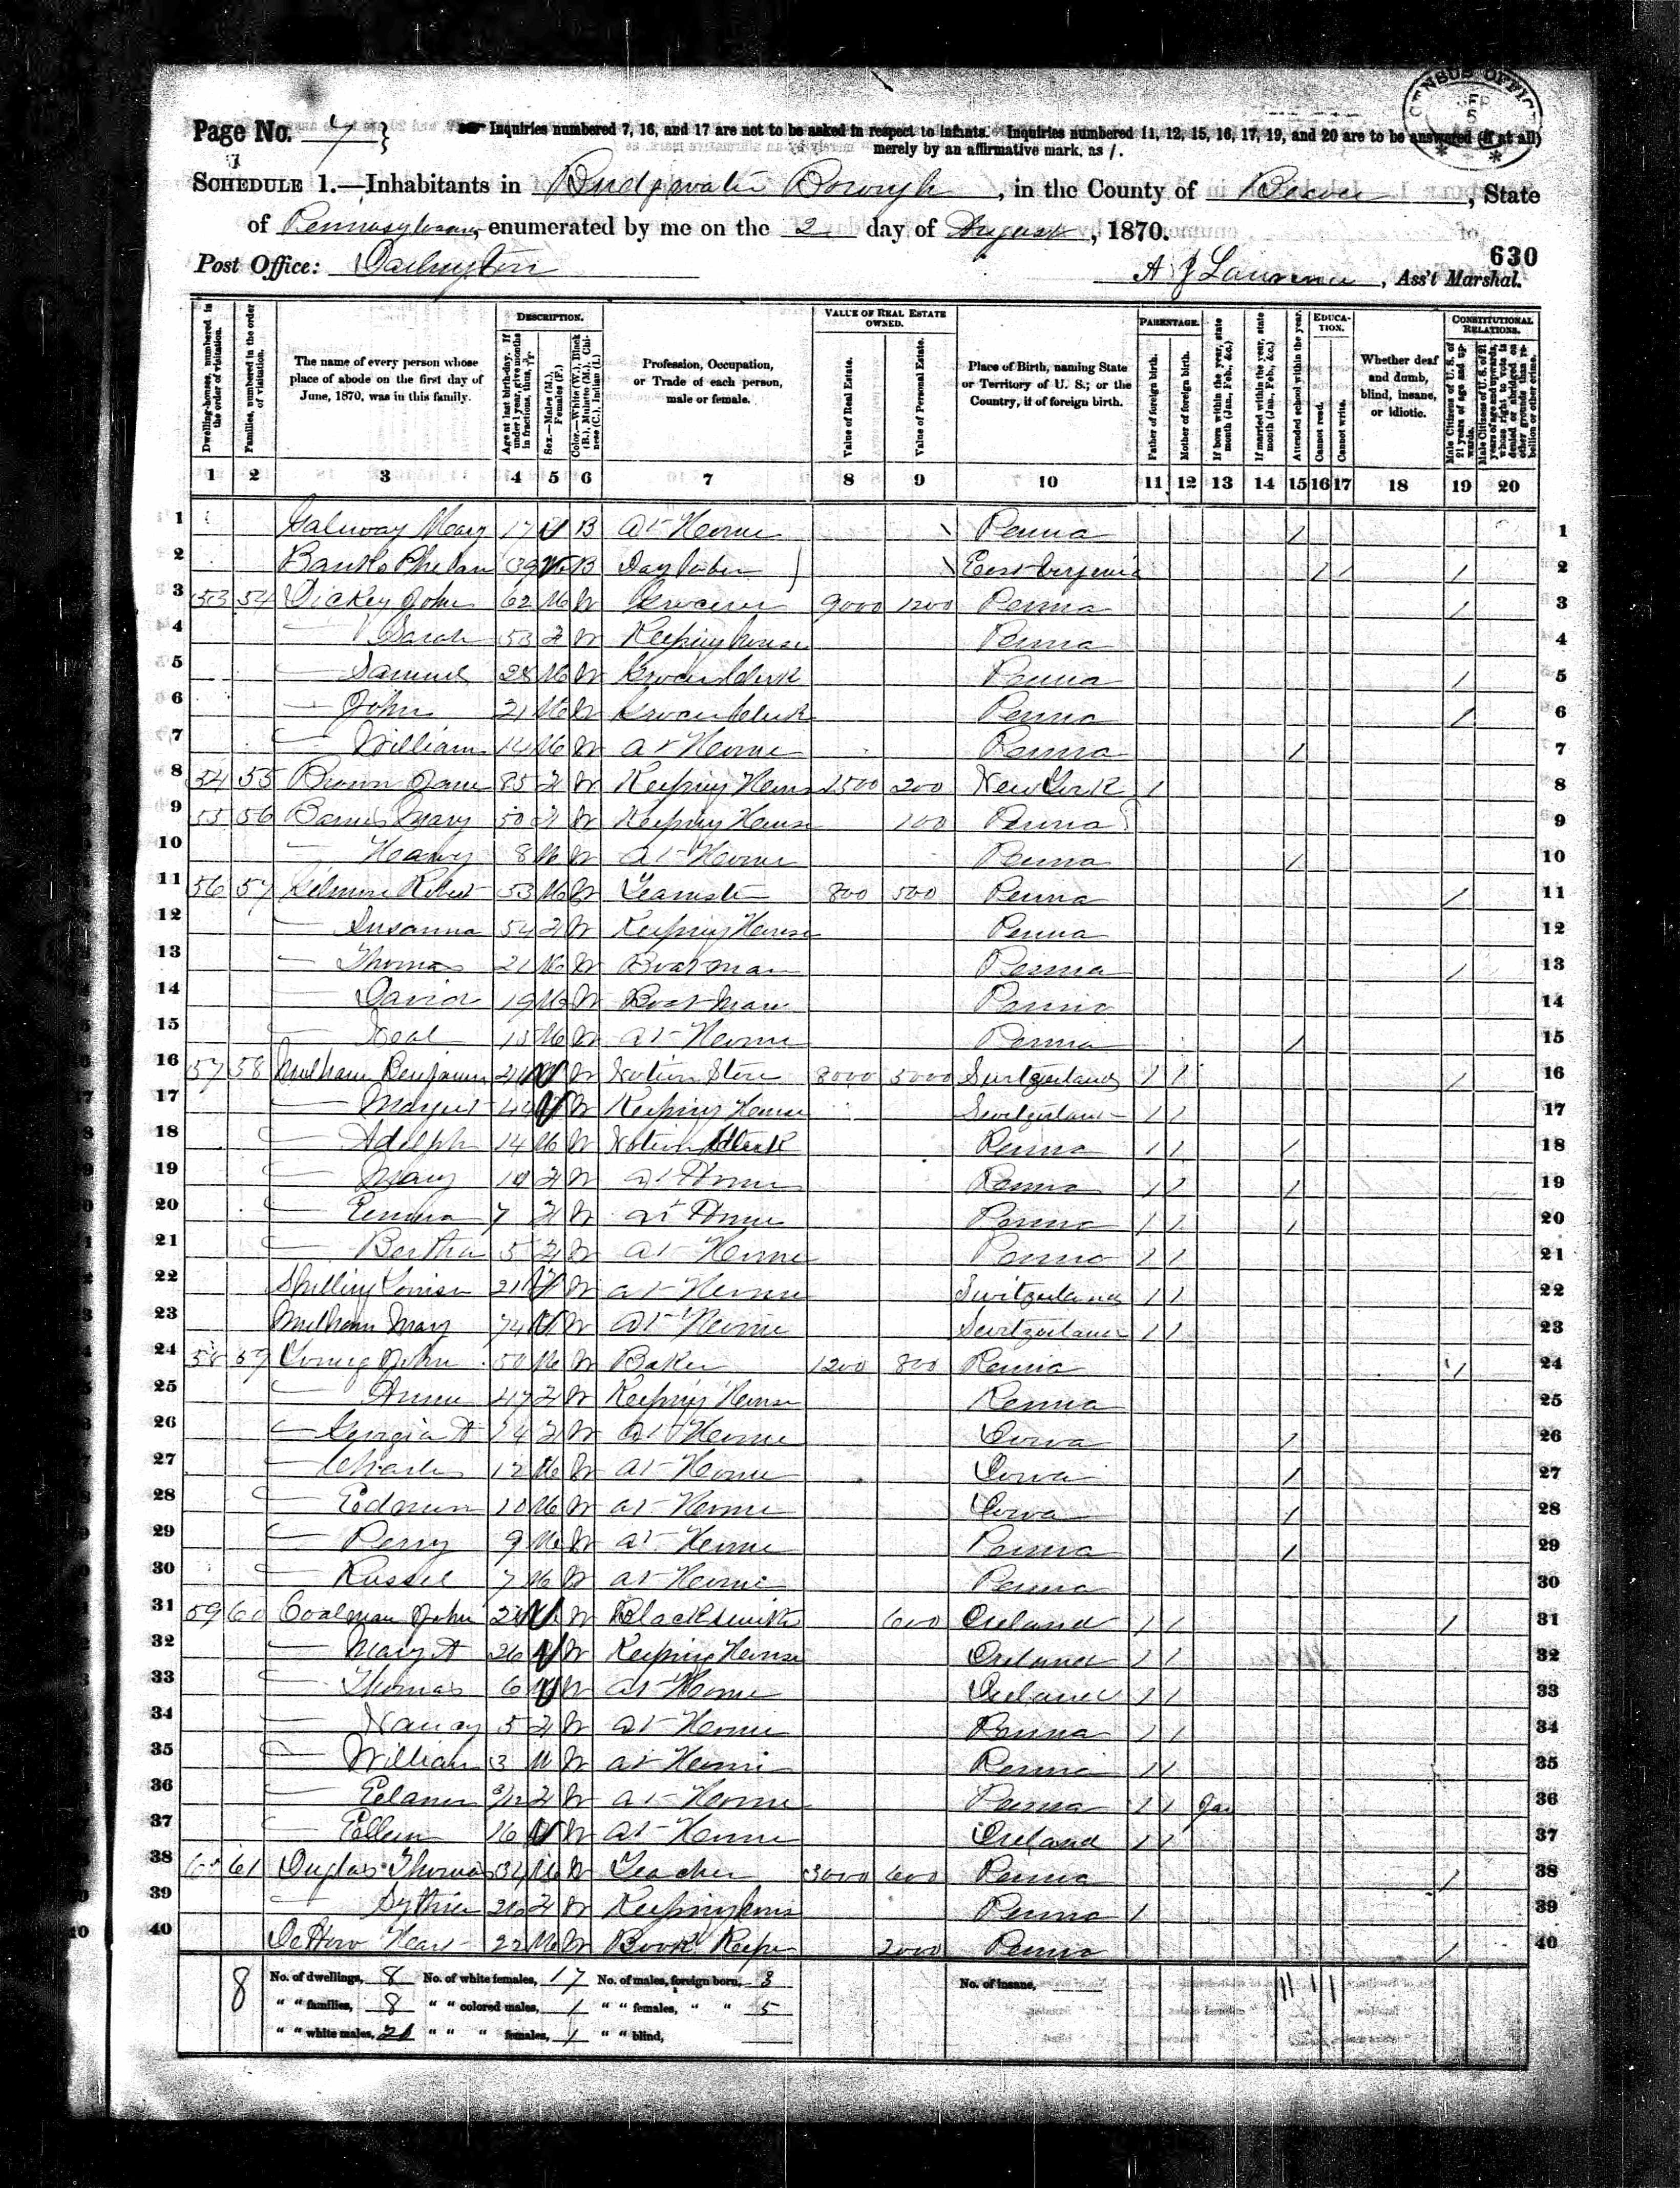 Page No. 7
Inquiries numbered 7, 16, and 17 are not to be asked in respect to infants. Inquiries numbered 11, 12, 15, 16, 17, 19, and 20 are to be answered (if at all)
merely by an affirmative mark, as /.
SCHEDULE 1.—Inhabitants in Bridgewater Borough, in the County of Beaver, State
of Pennsylvania, enumerated by me on the 2 day of August, 1870.
630
Post Office: Darlington
A J Lawrence, Ass't Marshal.
DESCRIPTION.
VALUE OF REAL ESTATE OWNED.
PARENTAGE.
EDUCATION.
CONSTITUTIONAL RELATIONS.
Dwelling-houses, numbered in the order of visitation.
Families, numbered in the order of visitation.
The name of every person whose place of abode on the first day of June, 1870, was in this family.
Age at last birth-day. If under 1 year, give months in fractions, thus, 3/12
Sex.—Males (M.), Females (F.)
Color.—White (W.), Black (B.), Mulatto (M.), Chinese (C.), Indian (I.)
Profession, Occupation, or Trade of each person, male or female.
Value of Real Estate.
Value of Personal Estate.
Place of Birth, naming State or Territory of U. S.; or the Country, if of foreign birth.
Father of foreign birth.
Mother of foreign birth.
If born within the year, state month (Jan., Feb., &c.)
If married within the year, state month (Jan., Feb., &c.)
Attended school within the year.
Cannot read.
Cannot write.
Whether deaf and dumb, blind, insane, or idiotic.
Male Citizens of U. S. of 21 years of age and upwards.
Male Citizens of U. S. of 21 years of age and upwards, whose right to vote is denied or abridged on other grounds than rebellion or other crime.
1 2 3 4 5 6 7 8 9 10 11 12 13 14 15 16 17 18 19 20
1 Galway Mary 17 F B At Home Penna / 1
2 Banks 39 M B Day laber East Virginia / / / 2
3 53 54 Dickey John 62 M W Grocerer 9000 1200 Penna / 3
4 — Sarah 53 F W Keeping house Penna 4
5 — Samuel 28 M W Grocer Clerk Penna / 5
6 — John 21 M W Grocer Clerk Penna / 6
7 — William 14 M W At Home Penna / 7
8 54 55 Brown Jane 85 F W Keeping House 1500 200 New York / 8
9 55 56 Barnes Mary 50 F W Keeping House 100 Penna 9
10 — Heanry 8 M W At Home Penna / 10
11 56 57 Gilmore Robert 53 M W Teamster 800 500 Penna / 11
12 — Susanna 54 F W Keeping House Penna 12
13 — Thomas 21 M W Boatman Penna / 13
14 — David 19 M W Boat Man Penna 14
15 — 15 M W At Home Penna / 15
16 57 58 Mulham Benjamin M W Notion Store 8000 5000 Switzerland / / / 16
17 — Margret F W Keeping House Switzerland / / 17
18 — Adolph 14 M W Notion Clerk Penna / / / 18
19 — Mary 10 F W At Home Penna / / / 19
20 — Emma 7 F W At Home Penna / / / 20
21 — Bertha 5 F W At Home Penna / / 21
22 Shilling Louisa 21 F W At Home Switzerland / / 22
23 Mulham Mary 74 F W At Home Switzerland / / 23
24 58 59 Young John 50 M W Baker 1200 800 Penna / 24
25 — Annie 47 F W Keeping House Penna 25
26 — Georgia A 14 F W At Home Iowa / 26
27 — Charles 12 M W At Home Iowa / 27
28 — Edmun 10 M W At Home Iowa / 28
29 — Perry 9 M W At Home Penna / 29
30 — Russel 7 M W At Home Penna 30
31 59 60 Coalman John 28 M W Blacksmith 600 Ireland / / / 31
32 — Mary A 26 F W Keeping House Ireland / / 32
33 — Thomas 6 M W At Home Ireland / / 33
34 — Nancy 5 F W At Home Penna / / 34
35 — William 3 M W At Home Penna / / 35
36 — Elanor 3/12 F W At Home Penna / / Jan 36
37 — Ellen 16 F W At Home Ireland / / 37
38 60 61 Duglas Thomas 34 M W Teacher 3000 600 Penna / 38
39 — 26 F W Keeping house Penna / 39
40 22 M W Book Keeper 2000 Penna / 40
8 No. of dwellings, 8 No. of white females, 17 No. of males, foreign born, 3 No. of insane,
" " families, 8 " " colored males, 1 " " females, " " 5
" " white males, 21 " " " females, 1 " " blind,